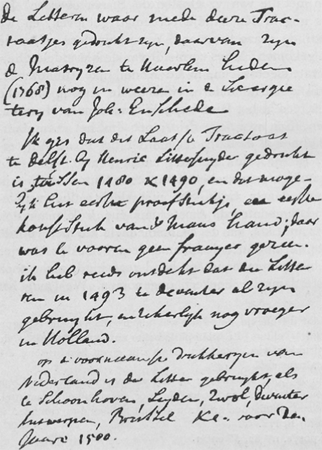 de Letteren waar mede deeze Trac-
taatjes gedrukt zyn, daar van zyn
de Matryzen te Haarlem heden
(1768) nog in weezen in de Lettergie
tery van Joh: Enschede
Ik gis dat dit Laatste Tractaat
te delft by Henric Lettersnyder gedrukt
is tusschen 1480 & 1490, en dit moge-
lyk zyn eerste proefstukje, een eerste
konststuk van 's Mans hand; daar
was te vooren geen fraayer gezien.
ik heb reeds ontdekt dat die Letter
ren in 1493 te deventer al zyn
gebruykt, en zekerlyk nog vroeger
in Holland.
op de voornaamste drukkeryen van
Nederland is die Letter gebruykt, als
te Schoonhoven, Leyden, Zwol, deventer
Antwerpen, Brussel &c. voor den
Jaare 1500.